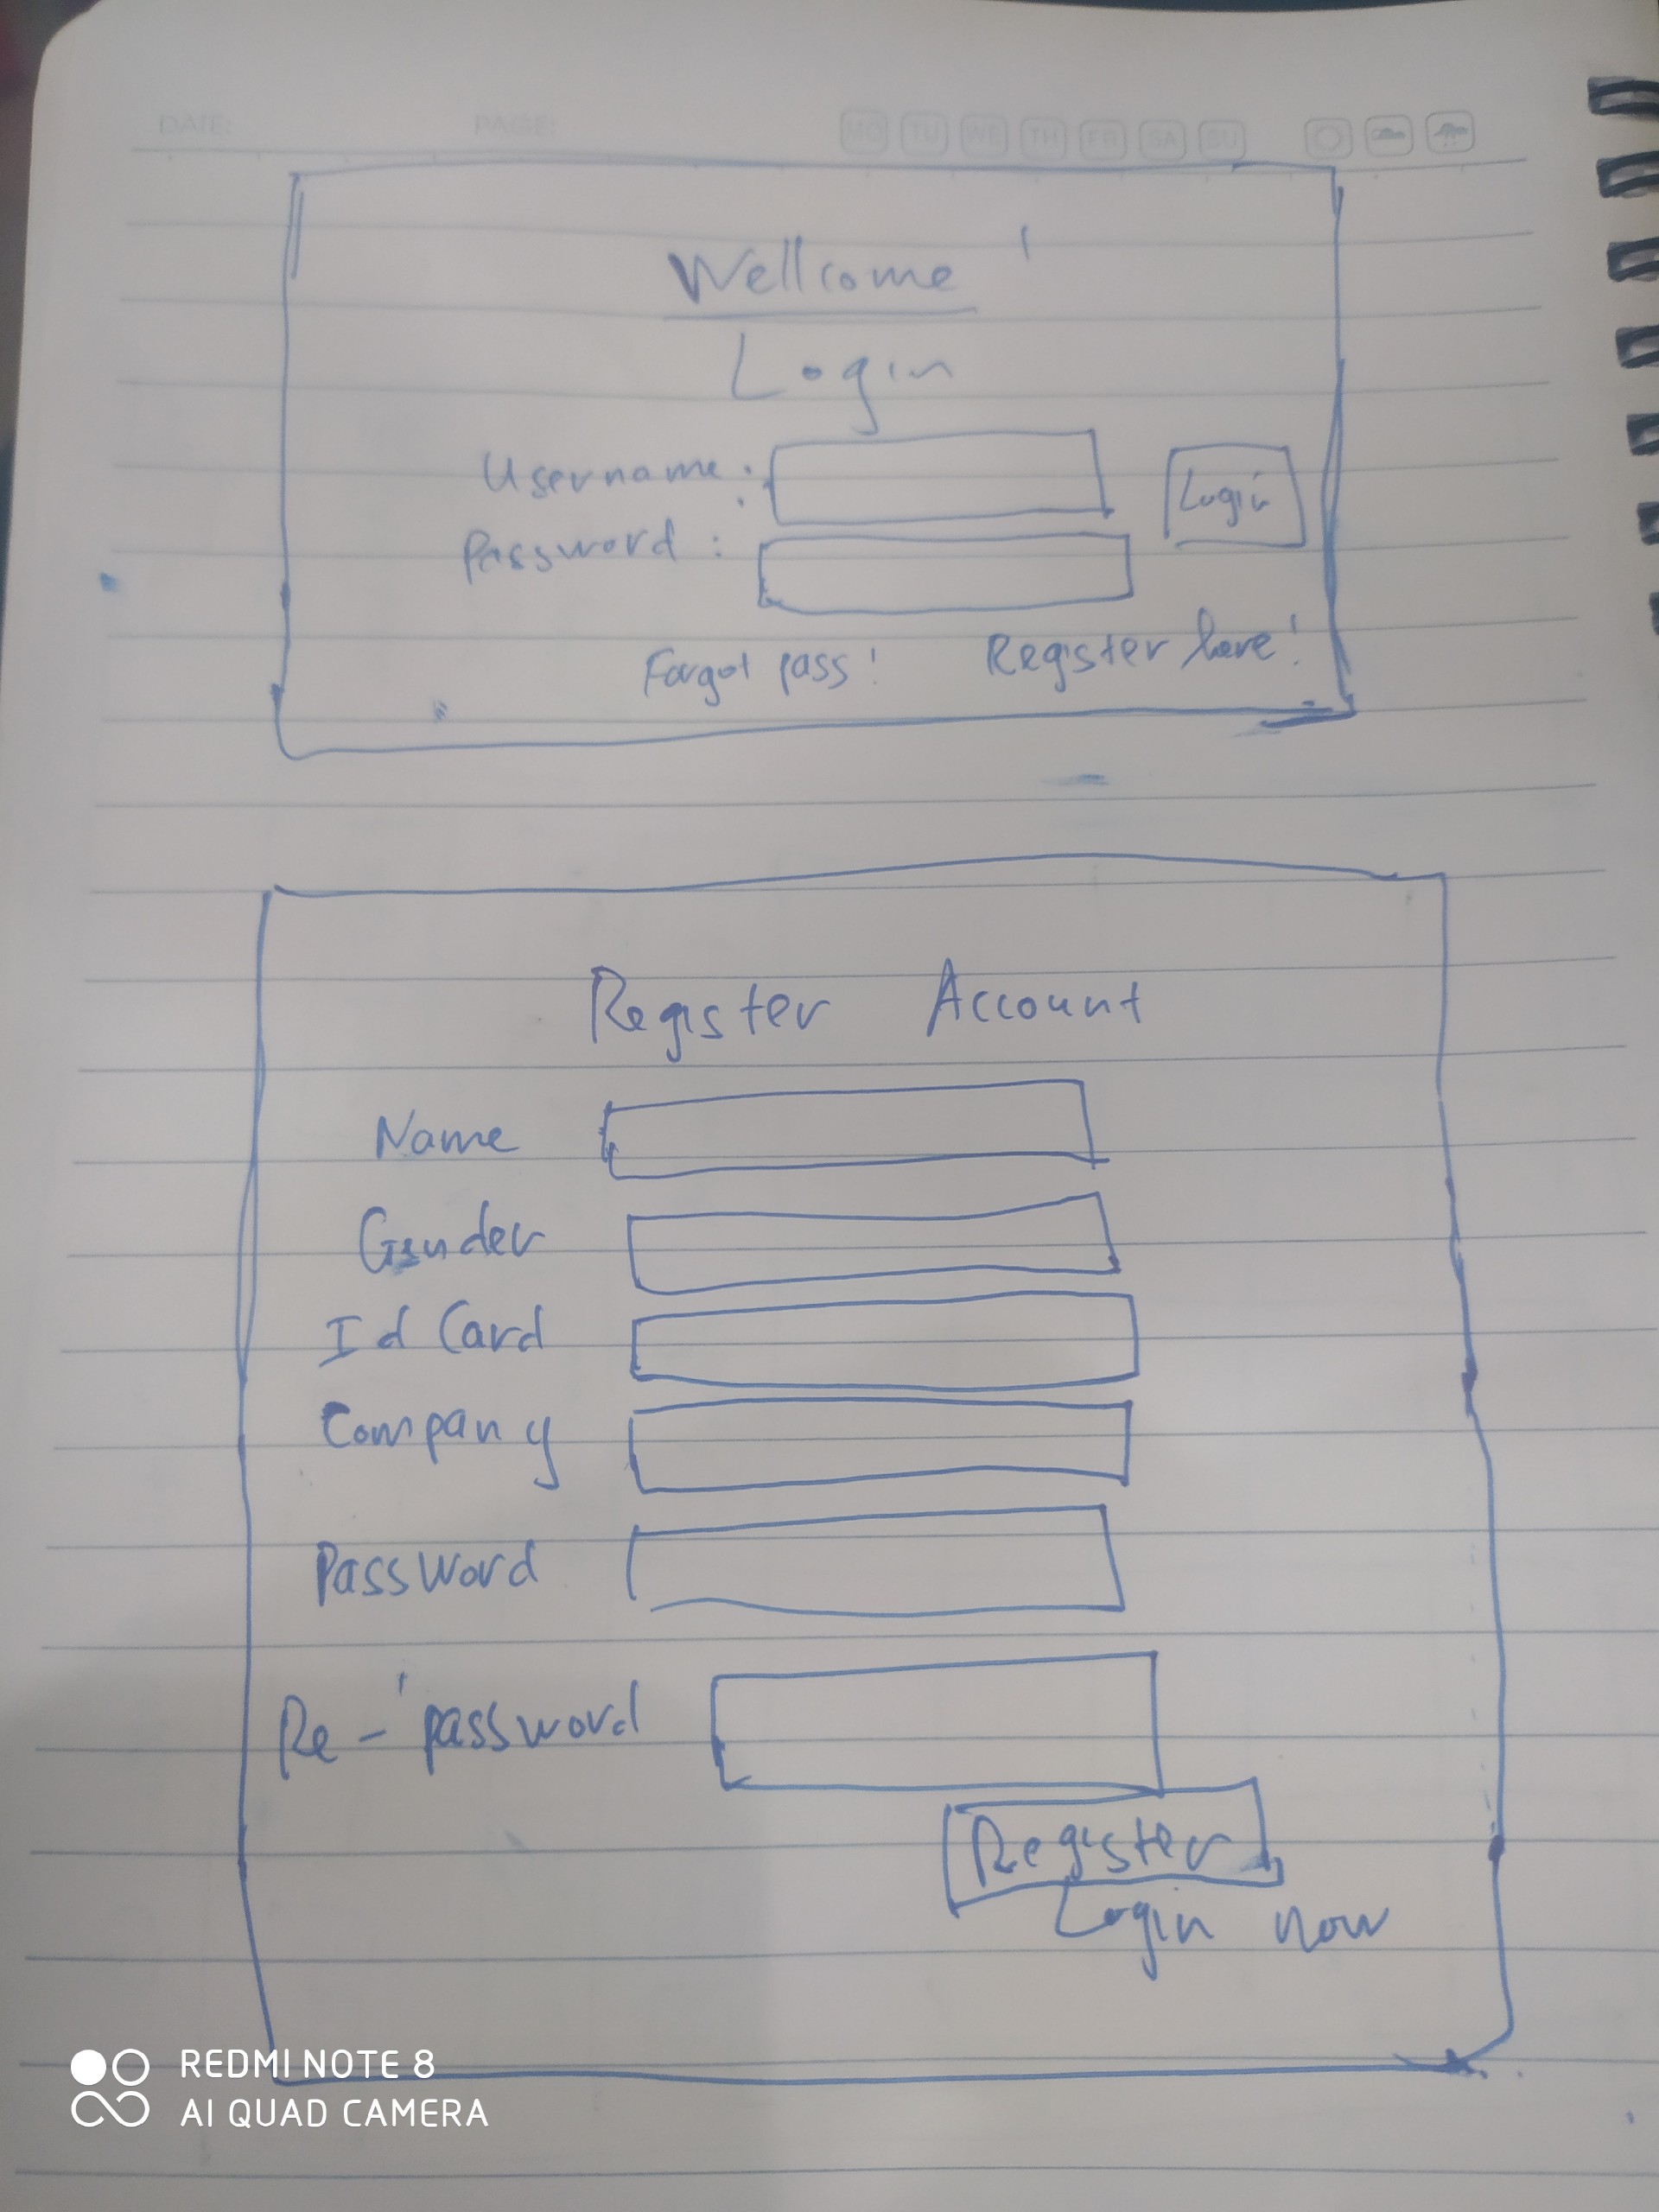 DATE: PAGE: MO TU WE TH FR SA SU
Wellcome !
Login
Username :
Login
Password :
Forgot pass! Register here!
Register Account
Name
Gender
Id Card
Company
Password
Re - password
Register
Login now
REDMI NOTE 8
AI QUAD CAMERA